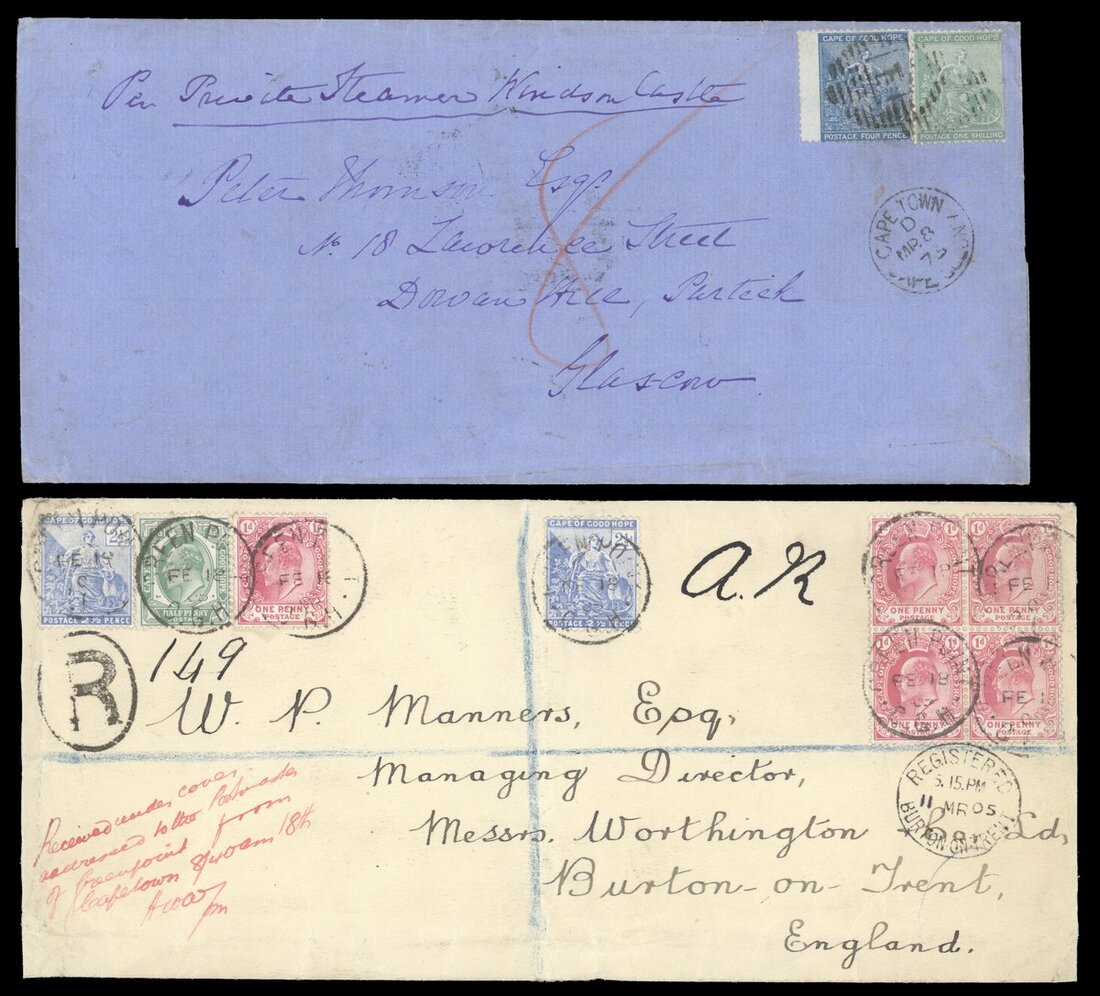 CAPE OF GOOD HOPE
POSTAGE FOUR PENCE
CAPE OF GOOD HOPE
POSTAGE ONE SHILLING
Per Private Steamer Windsor Castle
Peter Thomson Esqr.
No 18 Lawrence Street
Dowan Hill, Partick
Glascow
8
CAPE TOWN
D
MR 8
75
CAPE OF GOOD HOPE
POSTAGE 2½ PENCE
HALF PENNY
POSTAGE
1d
ONE PENNY
POSTAGE
FE 18
CAPE OF GOOD HOPE
POSTAGE 2½ PENCE
A.R
1d 1d
ONE PENNY ONE PENNY
POSTAGE POSTAGE
1d 1d
ONE PENNY ONE PENNY
POSTAGE POSTAGE
FE 18
R
149
W. P. Manners, Esq,
Managing Director,
Messrs. Worthington & Co Ld,
Burton-on-Trent,
England.
REGISTERED
5.15.PM
11 MR 05
BURTON-ON-TRENT
Received under cover
addressed to the Postmaster
of Greenpoint from
Capetown 8/40am 18th